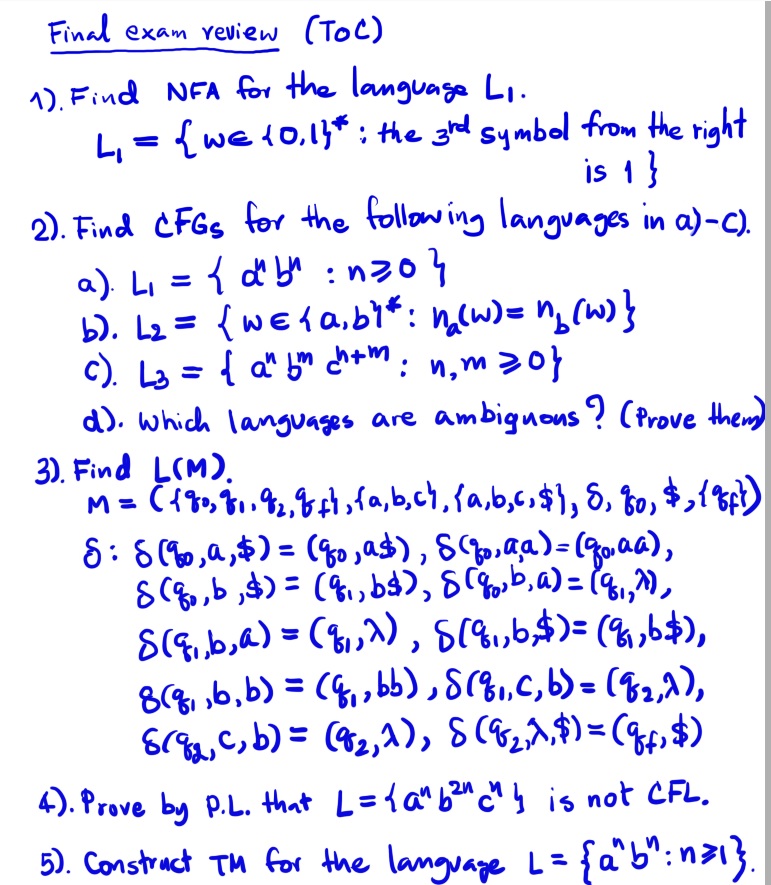 Final exam review (ToC)
1). Find NFA for the language L₁.
L₁ = { w∈ {0,1}* : the 3rd symbol from the right
is 1 }
2). Find CFGs for the following languages in a)-c).
a). L₁ = { aⁿbⁿ : n⩾0 }
b). L₂ = { w∈{a,b}* : nₐ(w) = n_b(w) }
c). L₃ = { aⁿ bᵐ cⁿ⁺ᵐ : n,m ⩾0}
d). Which languages are ambiguous? (Prove them)
3). Find L(M).
M = ({q₀,q₁,q₂,q_f},{a,b,c},{a,b,c,$}, δ, q₀, $,{q_f})
δ : δ(q₀,a,$) = (q₀,a$), δ(q₀,a,a)=(q₀,aa),
δ(q₀,b,$) = (q₁,b$), δ(q₀,b,a)=(q₁,λ),
δ(q₁,b,a) = (q₁,λ), δ(q₁,b,$)= (q₁,b$),
δ(q₁,b,b) = (q₁,bb), δ(q₁,c,b)= (q₂,λ),
δ(q₂,c,b) = (q₂,λ), δ(q₂,λ,$)=(q_f,$)
4). Prove by P.L. that L={aⁿb²ⁿcⁿ} is not CFL.
5). Construct TM for the language L = {aⁿbⁿ : n⩾1}.